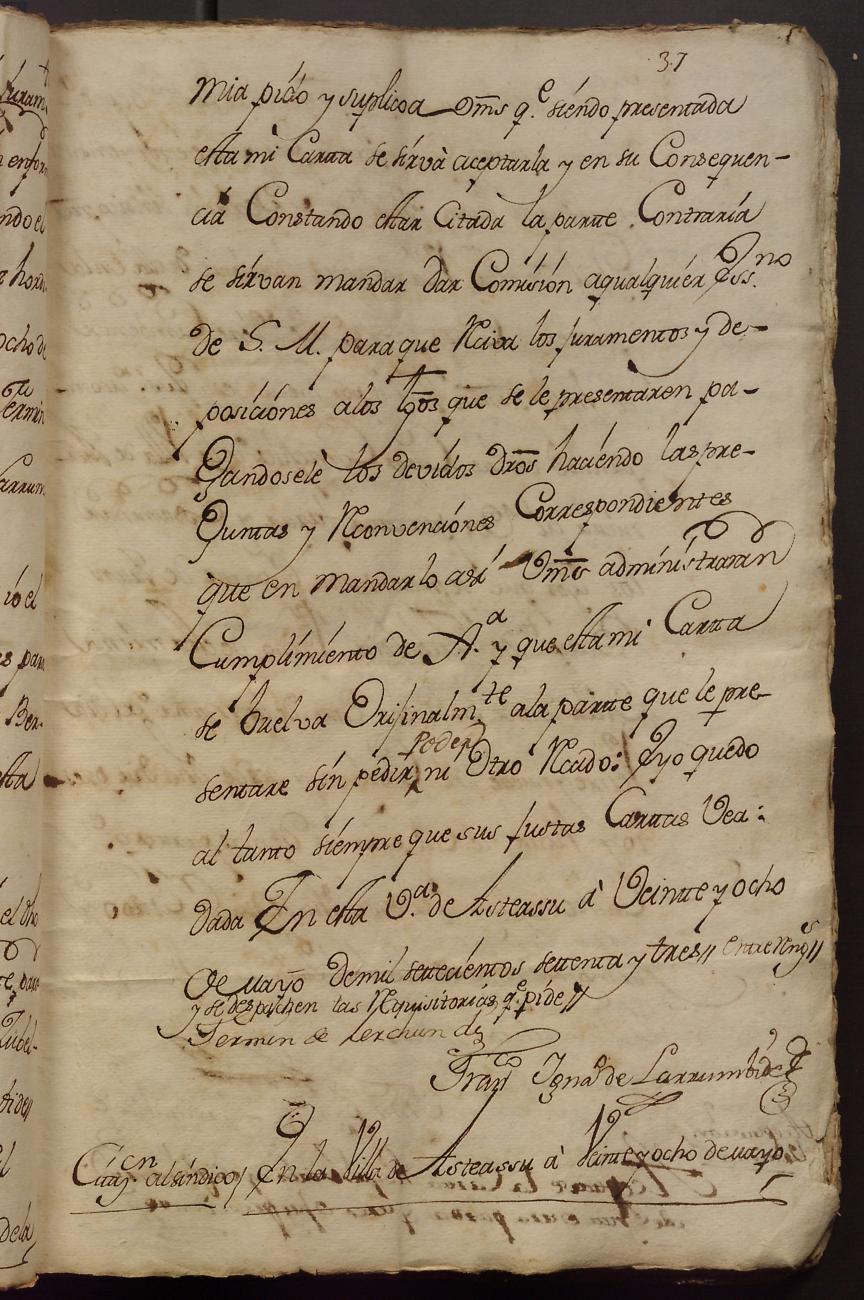 37
mia pido y suplico a Vms q.e siendo presentada
esta mi Carta se sirva aceptarla y en su Consequen-
cia Constando estar Citada la parte Contraria
se sirvan mandar dar Comisión a qualquier Ess.no
de S. M. para que Reciva los juramentos y de-
posiciónes a los tgos que se le presentaren pa-
gandosele los devidos dros haciendo las pre-
guntas y Reconvenciónes Correspondientes
que en mandarlo así Vms administraran
Cumplimiento de J.a y que esta mi Carta
se buelva Orijinalm.te a la parte que le pre-
poder
sentare sin pedir ni Otro Recado: Eyo quedo
al tanto siempre que sus justas Cartas Vea:
dada En esta V.a de Asteassu à Veinte y ocho
de mayo de mil settecientos settenta y tres // entre Rengs //
y se despachen las Requisitorias q.e pide //
Fermin de Lerchundi
Fran.co Ign.o de Larrumbide
Citaz.on al síndico / En la Villa de Asteassu à Veinte y ocho de mayo